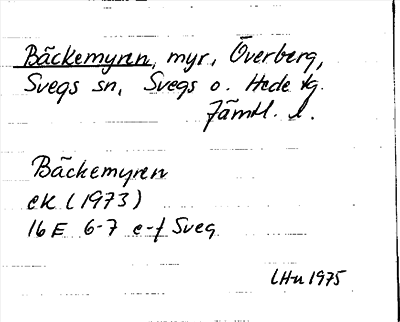 Bäckemyren, myr, Överberg,
Svegs sn, Svegs o. Hede tg.
Jämtl. l.
Bäckemyren
ek (1973)
16 E 6-7 e-f Sveg
LHn 1975